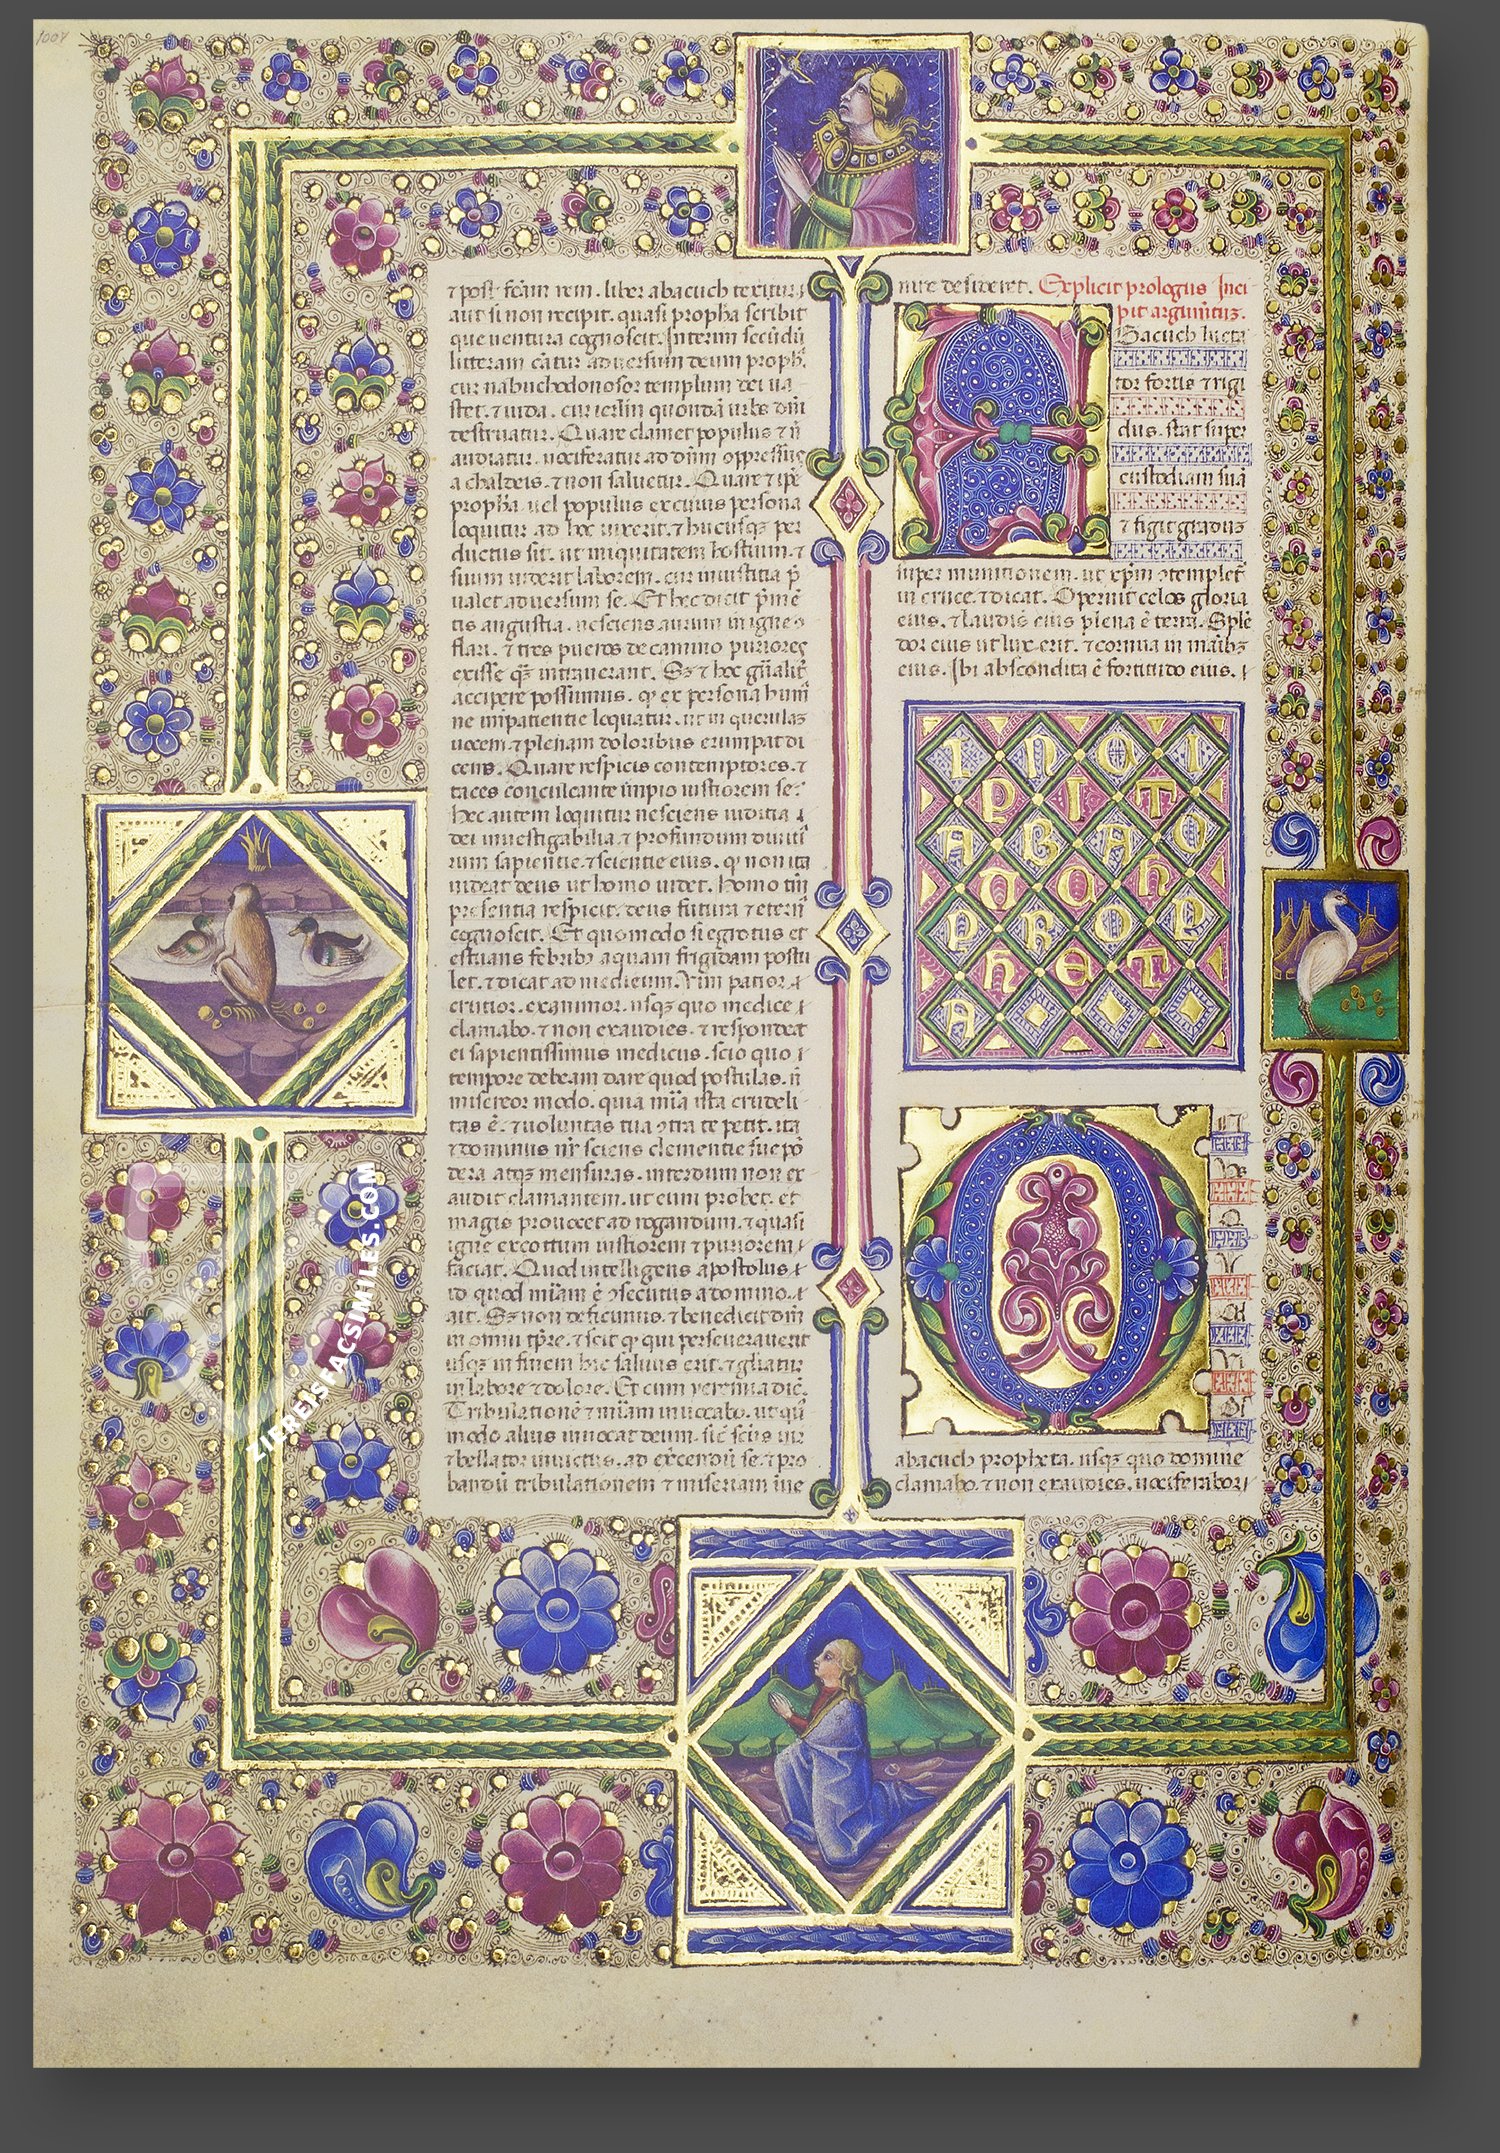 1007
⁊ post fcãm rem. liber abacuch texitur.
aut si non recipit. quasi propħa scribit
que uentura cognoscit. Interim secũdũ
litteram cãtur aduersum deum propħ.
cur nabuchodonosor templum dei ua
stet. ⁊ iuda. cur ierlm̃ quondã urbs dñi
destruatur. Quare clamet populus ⁊ ñ
audiatur. uociferatur ad dñm oppressus
a chaldeis. ⁊ non saluetur. Quare ⁊ ipẽ
propħa uel populus ex cuius persona
loquitur ad hoc uixerit. ⁊ hucusqꝫ per
ductus sit. ut iniquitatem hostium. ⁊
suum uiderit laborem. cur iniustitia p̃
ualet aduersum se. Et hec dicit
tis angustia. nesciens aurum in igne
flari. ⁊ tres pueros de camino puriores
exisse qꝫ intrauerant. Sꝫ ⁊ hoc
accipere possumus. ꝙ ex persona hum
ne impatientie loquatur. ut in querulas
uocem. ⁊ plenam doloribus erumpat di
cens. Quare respicis contemptores. ⁊
taces conculcante impio iustiorem se?
Hec autem loquitur nesciens iuditia
dei inuestigabilia. ⁊ profundum diuiti
rum sapientie. ⁊ scientie eius. ꝙ non ita
uideat deus ut homo uidet. Homo tm̃
presentia respicit. deus futura ⁊ etern
cognoscit. Et quomodo si egrotus et
estuans febribꝫ aquam frigidam postu
let. ⁊ dicat ad medicum. Vim patior.
crucior. exanimor. usqꝫ quo medice
clamabo. ⁊ non exaudies. ⁊ respondeat
ei sapientissimus medicus. scio quo
tempore debeam dare quod postulas. ñ
misereor modo. quia mĩa ista crudeli
tas ẽ. ⁊ uoluntas tua ↄtra te petit. ita
⁊ dominus nr̃ sciens clementie sue põ
dera atqꝫ mensuras. interdum non ex
audit clamantem. ut eum probet. et
magis prouocet ad rogandum. ⁊ quasi
igne excottum iustiorem ⁊ puriorem
faciat. Quod intelligens apostolus
id quod mĩam ẽ ↄsecutus a domino.
ait. Sꝫ non deficimus. ⁊ benedicit dñm
in omni tp̃re. ⁊ scit ꝙ qui perseuerauerit
usqꝫ in finem hic saluus erit. ⁊ gl̃iatur
in labore ⁊ dolore. Et cum
Tribulationẽ ⁊ mĩam inuocabo. ut
modo alius inuocat deum. sic
⁊ bellator inuictus. ad ⁊ pro
bandũ tribulationem ⁊ miseriam
Explicit prologus Inci
pit argumẽtuꝫ.
Bacuch lucta
tor fortis ⁊ rigi
dus. stat super
custodiam suã
⁊ figit gradus
super munitionem. ut xp̃m ↄtemplet̃
in cruce. ⁊ dicat. Operuit celos gloria
eius. ⁊ laudis eius plena ẽ terra. Splẽ
dor eius ut lux erit. ⁊ cornua in maibꝫ
eius. Ibi abscondita ẽ fortitudo eius.
INCI
PIT
ABAC
UCH
PROP
HET
A
O
abacuch propheta. usqꝫ quo domine
clamabo. ⁊ non exaudies. uociferabor
ZIEREISFACSIMILES.COM